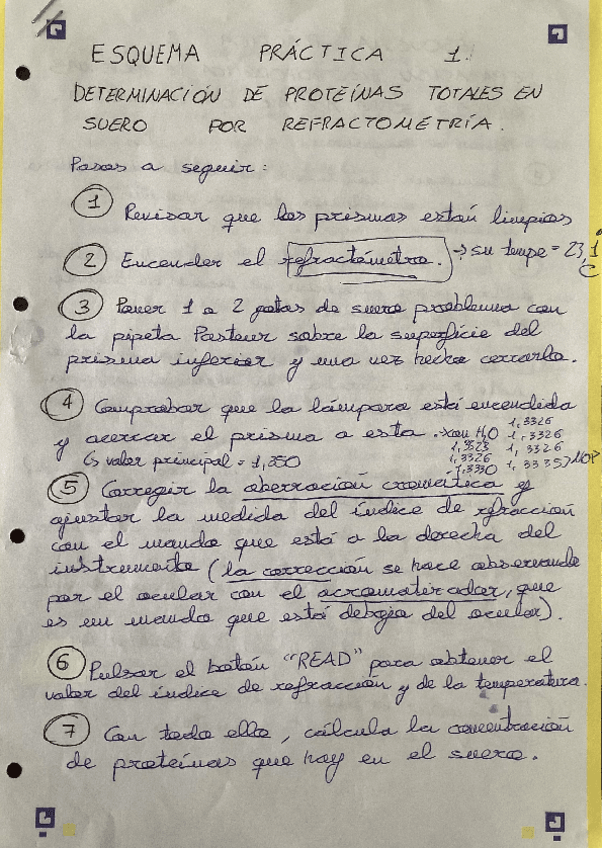 ESQUEMA PRÁCTICA 1.
DETERMINACIÓN DE PROTEÍNAS TOTALES EN
SUERO POR REFRACTOMETRÍA.
Pasos a seguir:
1 Revisar que los prismas están limpios
2 Encender el refractómetro. → su tempe = 23,1 C
3 Poner 1 o 2 gotas de suero problema con
la pipeta Pasteur sobre la superficie del
prisma inferior y una vez hecho cerrarlo.
4 Comprobar que la lámpara está encendida
y acercar el prisma a esta. con H2O
1,3326
1,3326
1,3326
1,3335
1,3323
1,3326
1,3330
↳ valor principal = 1,350
5 Corregir la aberración cromática y
ajustar la medida del índice de refracción
con el mando que está a la derecha del
instrumento (la corrección se hace observando
por el ocular con el acromatizador, que
es un mando que está debajo del ocular).
6 Pulsar el botón "READ" para obtener el
valor del índice de refracción y de la temperatura.
7 Con todo ello, cálcula la concentración
de proteínas que hay en el suero.